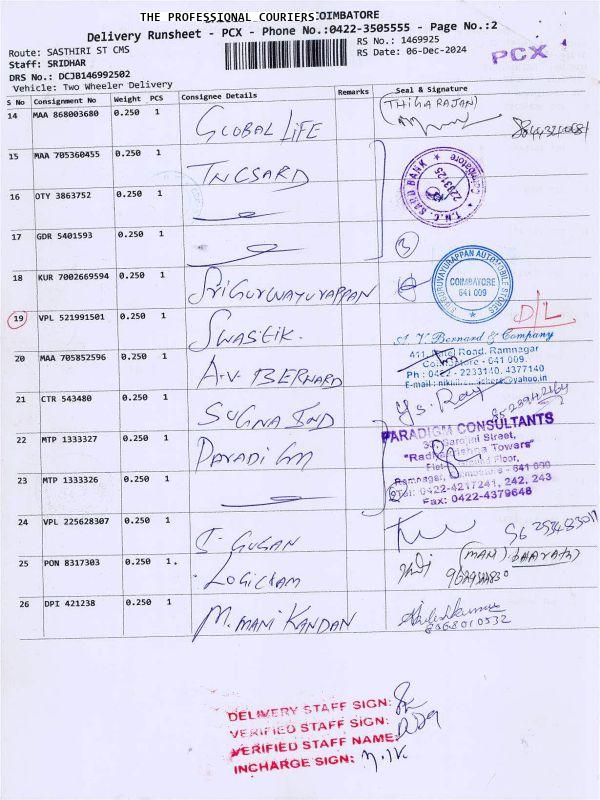 THE PROFESSIONAL COURIERS COIMBATORE
Delivery Runsheet - PCX - Phone No.:0422-3505555 - Page No.:2
Route: SASTHIRI ST CMS
RS No.: 1469925
Staff: SRIDHAR
RS Date: 06-Dec-2024
PCX
DRS No.: DCJB146992502
Vehicle: Two Wheeler Delivery
S No Consignment No Weight PCS Consignee Details Remarks Seal & Signature
14 MAA 868003680 0.250 1 GLOBAL LIFE (THIGARAJAN)
15 MAA 705360455 0.250 1 TNCSARD
T.N.C. SARD BANK * Coimbatore *
2233125
16 OTY 3863752 0.250 1
17 GDR 5401593 0.250 1
3
18 KUR 7002669594 0.250 1 SRIGURUVAYURAPPAN
GURUVAYURAPPAN AUTOMOBILE STORES
COIMBATORE
641 009
19 VPL 521991501 0.250 1 SWASTIK.
D/L
20 MAA 705852596 0.250 1 A.V BERNARD
A. V. Bernard & Company
411, Patel Road, Ramnagar
Coimbatore - 641 009.
Ph : 0422 - 2233140, 4377140
21 CTR 543480 0.250 1 SUGNA IND
22 MTP 1333327 0.250 1 PARADIGM
PARADIGM CONSULTANTS
Sarojini Street,
"Radhakrishna Towers"
Floor,
Ramnagar, Coimbatore - 641 009
Tel: 0422-4217241, 242, 243
Fax: 0422-4379648
23 MTP 1333326 0.250 1
24 VPL 225628307 0.250 1 J. GUGAN
25 PON 8317303 0.250 1. LOGICKAM
(MANI) BHARATH)
26 DPI 421238 0.250 1 M. MANI KANDAN
8968010532
DELIVERY STAFF SIGN:
VERIFIED STAFF SIGN:
VERIFIED STAFF NAME:
INCHARGE SIGN: